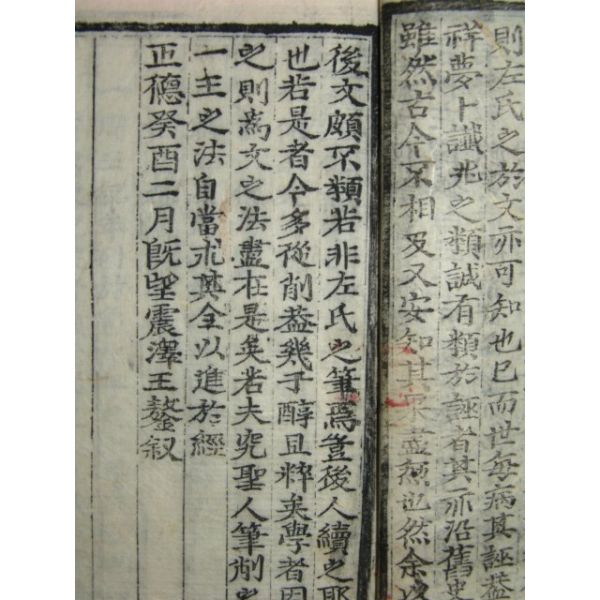 則左氏之於文亦可知也已而世每病其誣蓋
祥夢卜讖兆之類誠有類於誣者其亦沿舊史
雖然古今不相及又安知其果盡無也然余以
後文頗不類若非左氏之筆焉豈後人續之耶
也若是者今多從削蓋幾于醇且粹矣學者因
之則為文之法盡在是矣若夫究聖人筆削之
一主之法自當求其全以進於經
正德癸酉二月旣望震澤王鏊叙